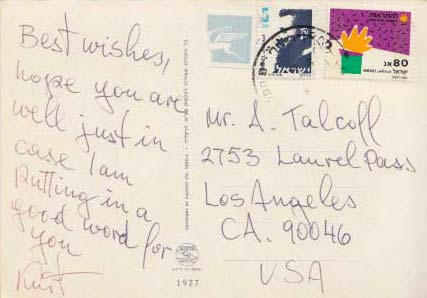 Best wishes,
hope you are
well just in
case I am
Putting in a
good word for
you
Kurt
Mr. A. Talcoff
2753 Laurel Pass
Los Angeles
CA. 90046
USA
ישראל
ISRAEL
80 אג
ישראל
1927